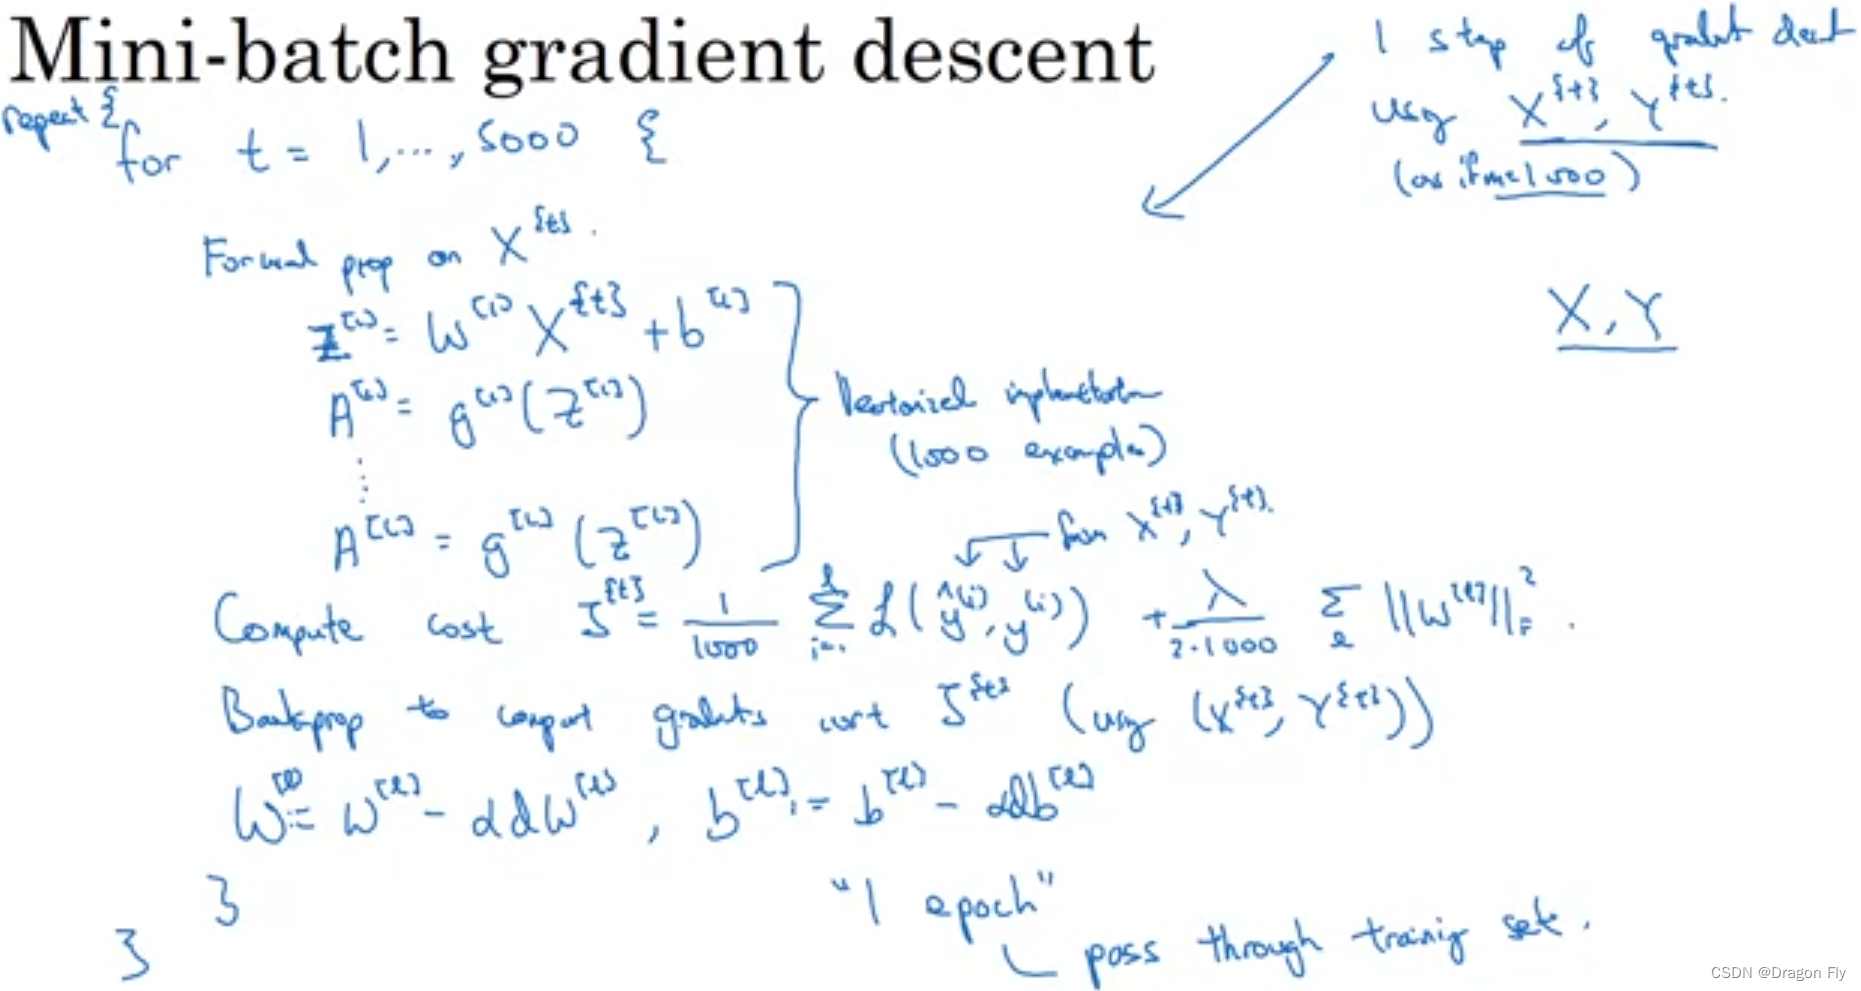 Mini-batch gradient descent
repeat {
for t = 1,..., 5000 {
1 step of gradient descent
using X^{t}, Y^{t}.
(as if m=1000)
Forward prop on X^{t}.
Z^[1] = W^[1] X^{t} + b^[1]
A^[1] = g^[1](Z^[1])
⋮
A^[L] = g^[L](Z^[L])
X, Y
Vectorized implementation
(1000 examples)
from X^{t}, Y^{t}.
Compute cost J^{t} = 1/1000 Σ_{i=1}^{l} L(ŷ^(i), y^(i)) + λ/(2·1000) Σ_l ||W^[l]||_F^2.
Backprop to compute gradients wrt J^{t} (using (X^{t}, Y^{t}))
W^[l] := W^[l] - αdW^[l], b^[l] := b^[l] - αdb^[l]
}
}
"1 epoch"
pass through training set.
CSDN @Dragon Fly